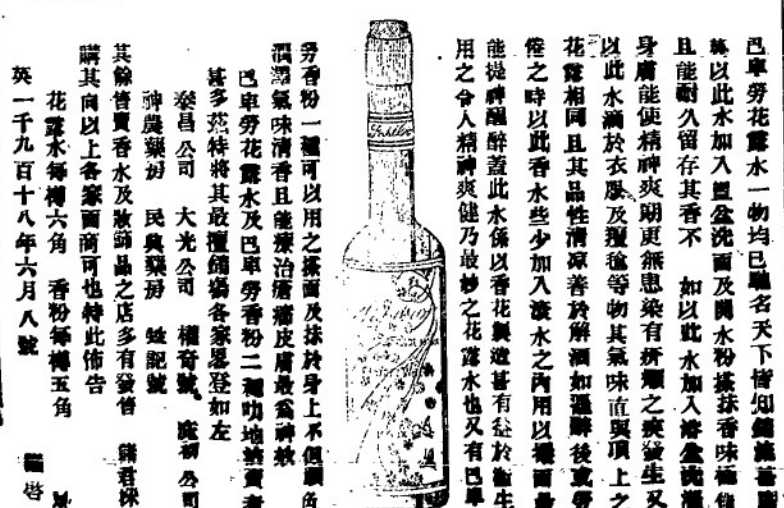 巴車勞花露水一物均已馳名天下皆知
以此水加入盥盆洗面及開水粉搽抹香味極佳
且能耐久留存其香不 如以此水加入浴盆洗
身膚能使精神爽朗更無患染有疥癩之疾發生又
以此水滴於衣服及氈毯等物其氣味直與頂上之
花露相同且其品性清凉善於解酒如遇醉後或勞
倦之時以此香水些少加入淡水之內用以擦面
能提神醒醉蓋此水係以香花製造甚有益於衛生
用之令人精神爽健乃最妙之花露水也又有巴車
勞香粉一種可以用之搽面及抹於身上不但顏色
潤澤氣味清香且能療治瘡痛皮膚最爲神效
巴車勞花露水及巴車勞香粉二種叻地銷賣者
甚多茲特將其最擅銷塲各家畧登如左
泰昌公司 大光公司 權奇號 公司
神農藥房 民興藥房 號
其餘售賣香水及妝飾品之店多有發售 諸君採
購其向以上各家面商可也特此佈告
花露水每樽六角 香粉每樽五角
英一千九百十八年六月八號 啓